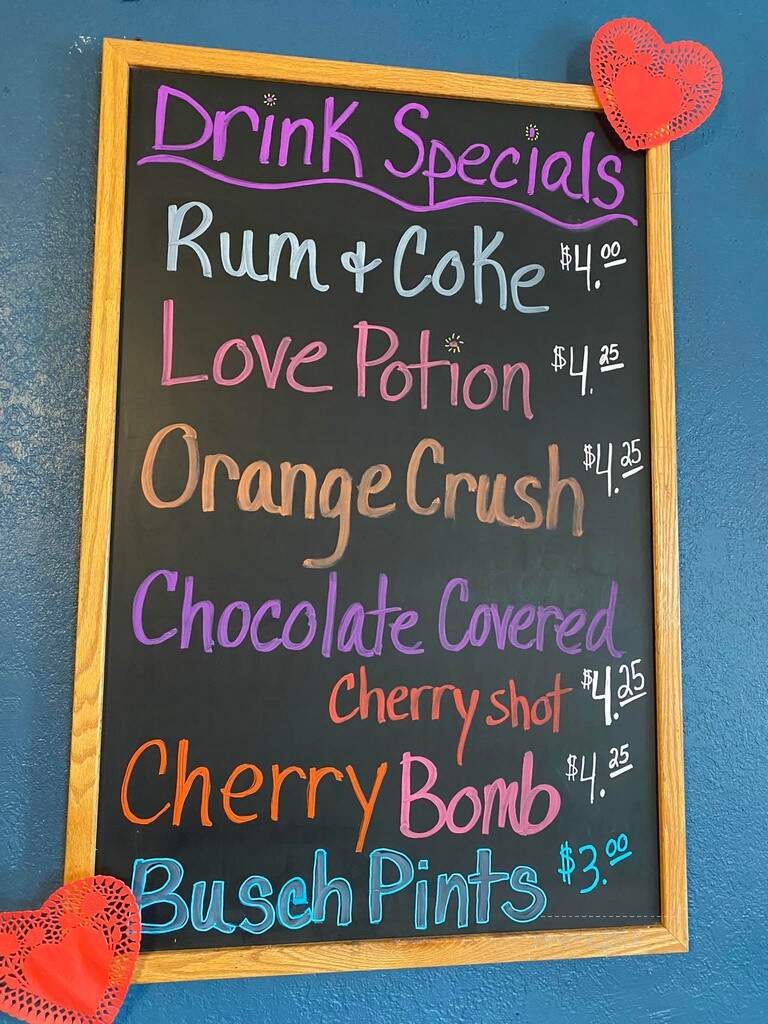 Drink Specials
Rum & Coke $4.00
Love Potion $4.25
Orange Crush $4.25
Chocolate Covered
Cherry shot $4.25
Cherry Bomb $4.25
Busch Pints $3.00